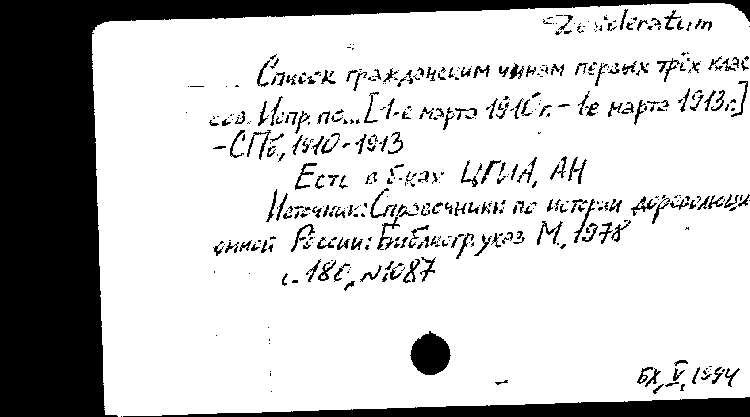 Desideratum
Список гражданским чинам первых трёх клас
сов. Испр. по... [1-е марта 1910 г. - 1е марта 1913 г.]
- СПб, 1910-1913
Есть в б-ках ЦГИА, АН
Источник: Справочники по истории дореволюци
онной России: Библиогр. указ М., 1978
с. 180, N1087
БХ, V, 1994